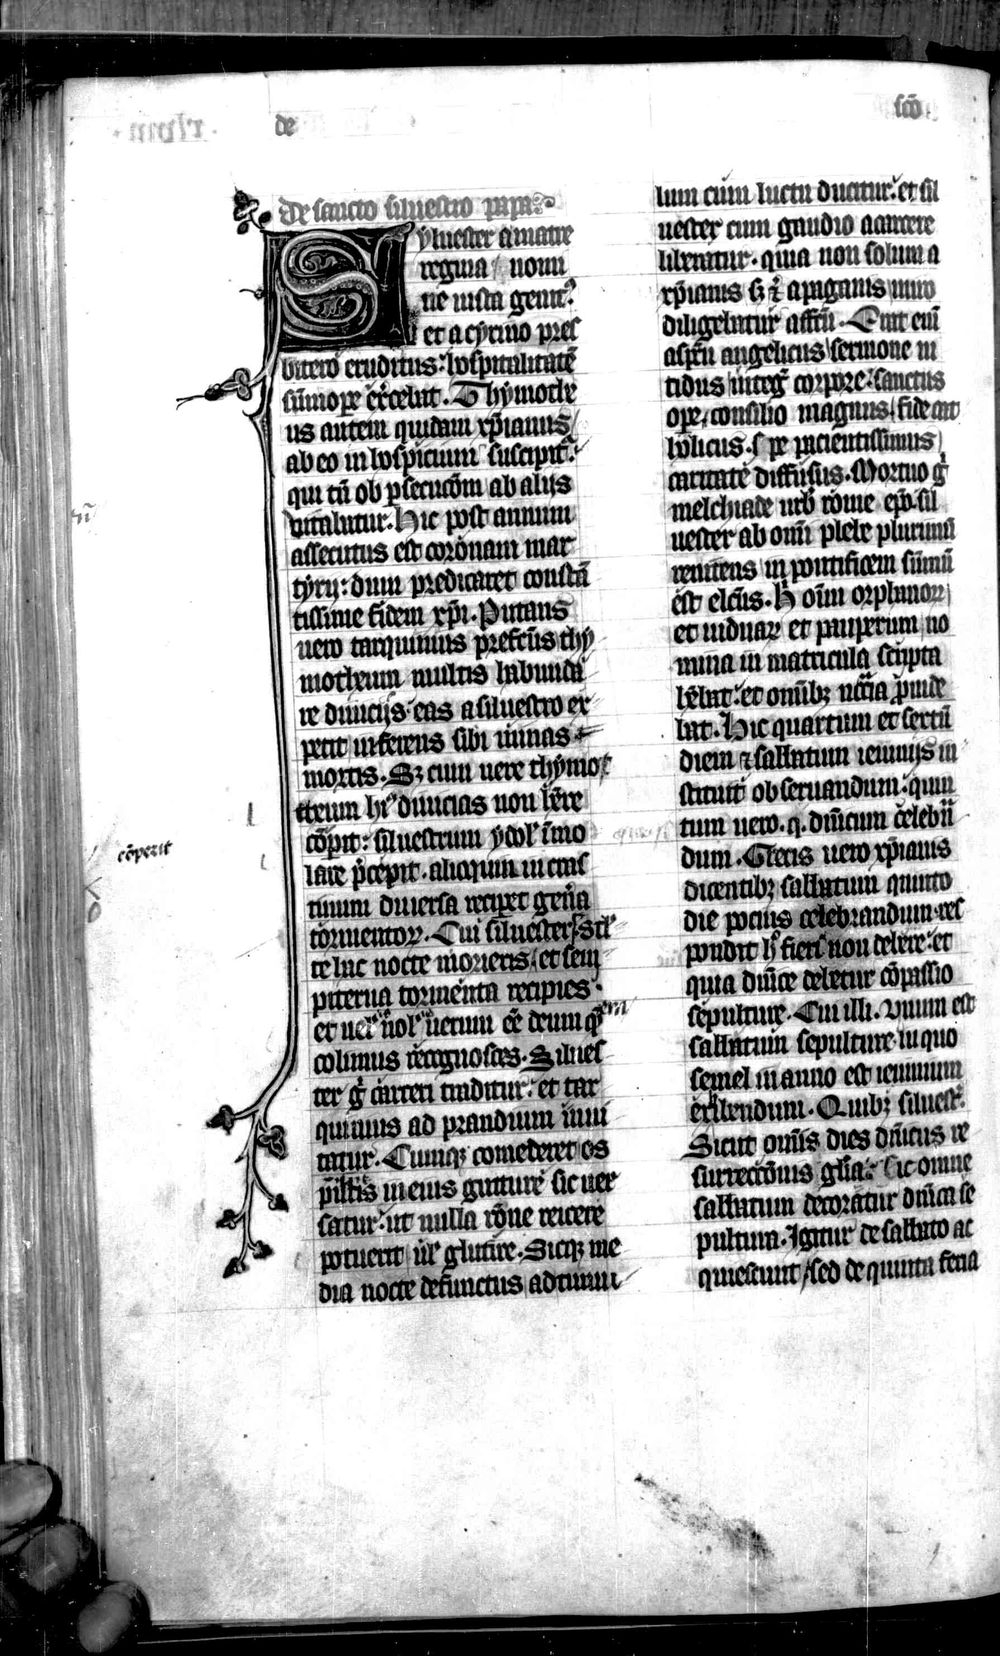 de
scō
De sancto siluestro papa.
Syluester a matre
regina / nomi
ne iusta genit⁹.
et a cyrino pres
bitero eruditus: hospitalitatē
sūmope exercebat. Thymothe
us autem quidam xp̄ianus
ab eo in hospicium suscipit᷑.
qui tn̄ ob ꝑsecucōm ab alijs
vitabatur. Hic post annum
assecutus est coronam mar
tyrij: dum predicaret constā
tissime fidem xp̄i. Putans
uero tarquinius prefect̄us thy
motheum multis habundā
re diuicijs eas a siluestro ex
petit inferens sibi minas
mortis. Sꝫ cum uere thymo
theum h̄ diuicias non h̄re
cōperit
cōpit: siluestrum ydol' īmo
lare p̄cepit. alioquin in cras
tinum diuersa reciperet geña
tormentoꝝ. Cui siluester. Stl'
te hac nocte morieris / et sem
piterna tormenta recipies.
et uel' nol' uerum ēē deum quem
colimus recognosces. Silues
ter g̊ carceri traditur. et tar
quinius ad prandium inui
tatur. Cumqꝫ comederet os
piscis in eius gutture sic uer
satur. ut nulla rōne reicere
potuerit ul' glutire. Sicqꝫ me
dia nocte defunctus ad tumu
lum cum luctu ducitur. et sil
uester cum gaudio a carcere
liberatur. quia non solum a
xp̄ianis sꝫ ⁊ a paganis miro
diligebatur affc̄u. Erat enī
aspc̄u angelicus / sermone ni
tidus / integ̊ corpore. sanctus
ope, consilio magnus / fide cat
holicus. spe pacientissimus /
caritate diffusus. Mortuo g̊
melchiade urb' rome ep̄o. sil
uester ab omī plebe plurimū
renitens in pontificem sūmū
est elc̄us. H oīm orphanoꝝ
et uiduaꝝ et pauperum no
mina in matricula scripta
h̄ebat. et onībꝫ nc̄cia prouide
bat. Hic quartum et sextū
diem ⁊ sabbatum ieiunijs in
stituit obseruandum. quin
tum uero. q. dn̄icum celebrā
dum. Grecis uero xp̄ianis
dicentibꝫ sabbatum quinto
die pocius celebrandum. res
pondit h̄ fieri non debere. et
quia dn̄ice debetur cōpassio
sepulture. Cui illi. Vnum est
sabbatum sepulture. in quo
semel in anno est ieiunium
exhibendum. Quibꝫ siluest.
Sicut om̄is dies dn̄icus re
surrectōnis gl̄ia. sic omne
sabbatum decoratur dn̄ica se
pultura. Igitur de sabbato ac
quiescunt / sed de quinta feria